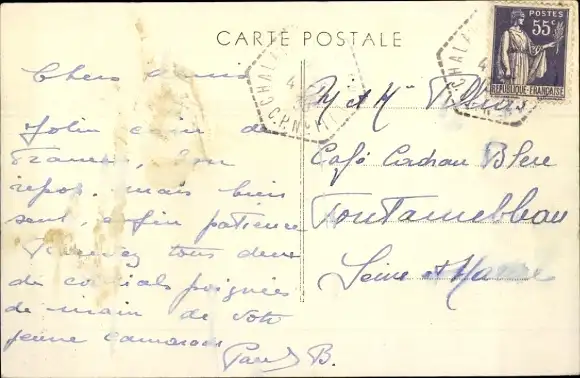 CARTE POSTALE
POSTES
55c
REPUBLIQUE-FRANÇAISE
Chers amis
Joli coin de
France, bon
repos, mais bien
seul, enfin patience
Recevez tous deux
de cordiales poignées
de main de votre
jeune camarade
Paul B.
M et Mme
Café Cadran Bleu
Fontainebleau
Seine et Marne